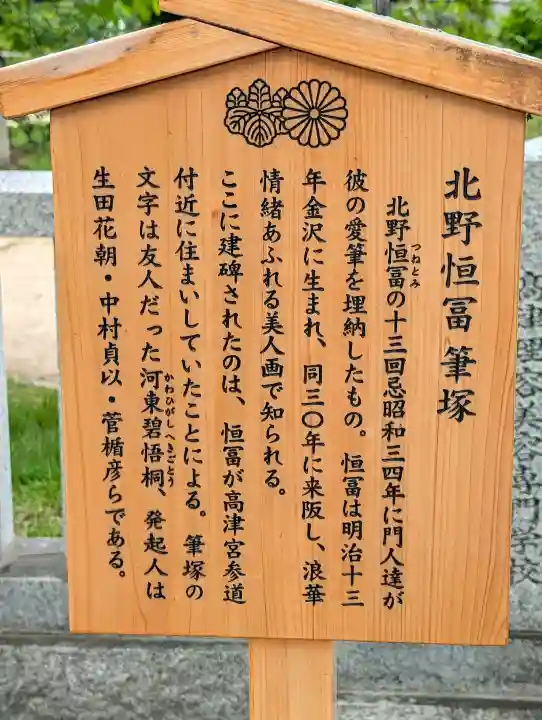 北野恒冨筆塚
北野恒冨の十三回忌昭和三四年に門人達が
つねとみ
彼の愛筆を埋納したもの。恒冨は明治十三
年金沢に生まれ、同三〇年に来阪し、浪華
情緒あふれる美人画で知られる。
ここに建碑されたのは、恒冨が高津宮参道
付近に住まいしていたことによる。筆塚の
文字は友人だった河東碧梧桐、発起人は
かわひがしへきごとう
生田花朝・中村貞以・菅楯彦らである。